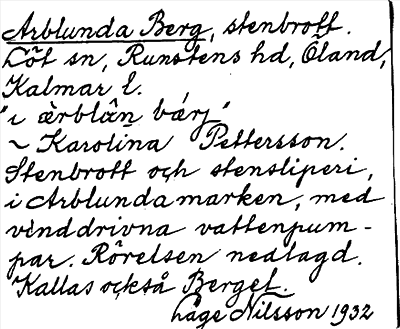 Arblunda Berg, stenbrott.
Löt sn, Runstens hd, Öland,
Kalmar l.
"ı ằrblân bárj"
~ Karolina Pettersson.
Stenbrott och stensliperi,
i Arblundamarken, med
vinddrivna vattenpum-
par. Rörelsen nedlagd.
Kallas också Berget.
håge Nilsson 1932